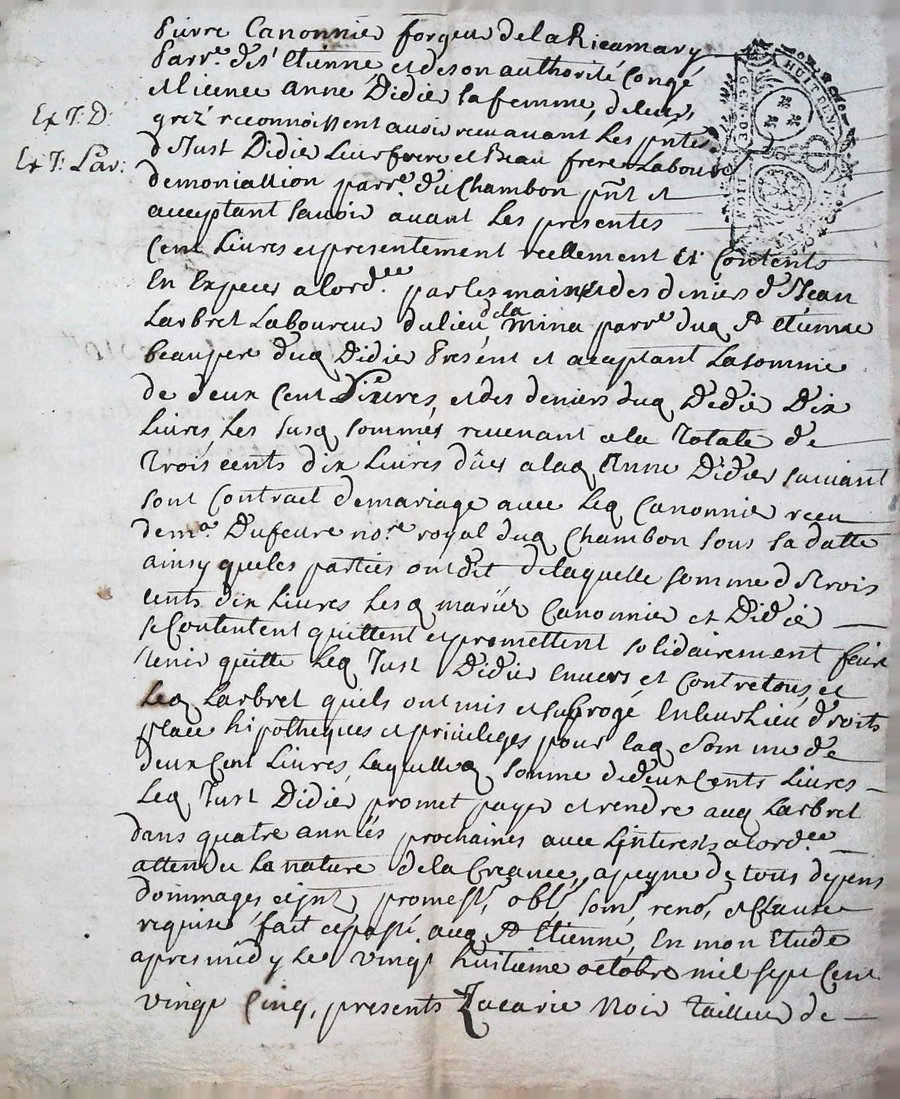 Pierre Canonnier forgeur de la Ricamary
Parr.e de St Etienne et de son authorité Congé
et licence Anne Didier sa femme, de leurs
grez reconnoissent avoir receu avant les pntes
Ext: D:
de Just Didier leur frere et Beau frere Laboureur
Ext: Lar:
de moniallion parr.e du Chambon pnt et
acceptant savoir avant les presentes
Cent Livres et presentement reellement et Contents
En Especes alord.ee par les mains et des deniers de Jean
Larbret Laboureur du lieu de la mina parr.e dud St etienne
beaupere dud Didier Présent et acceptant La somme
de deux Cent Livres, et des deniers dud Didier Dix
Livres, Les susd sommes revenant a la Totale de
Trois cents dix Livres dües a lad Anne Didier suivant
sont Contract de mariage avec led Canonnier receu
de m.e Dufeure no.re royal dud Chambon sous sa datte
ainsy que les parties ont dit de laquelle somme de trois
cents dix Livres Lesd mariéz Canonnier et Didier
se Contentent quittent et promettent solidairement faire
tenir quitte led Just Didier envers et contre tous, et
Led Larbret quels ont mis et subrogé En leur Lieu droits
place hipotheques et privileges pour lad somme de
deux Cent Livres, Laquelle somme de deux Cents Livres
Led Just Didier promet payer et rendre aud Larbret
dans quatre années prochaines avec L'interests alord.ee
attendu La nature de la Creance, a peyne de tous depens
dommages et jnt, promess, obl, soum, reno, et Clause
requise, fait et passé aud St Etienne, En mon Etude
apres midy le vingt huitieme octobre mil sept Cent
vingt Cinq, presents Zacarie Noir Tailleur de